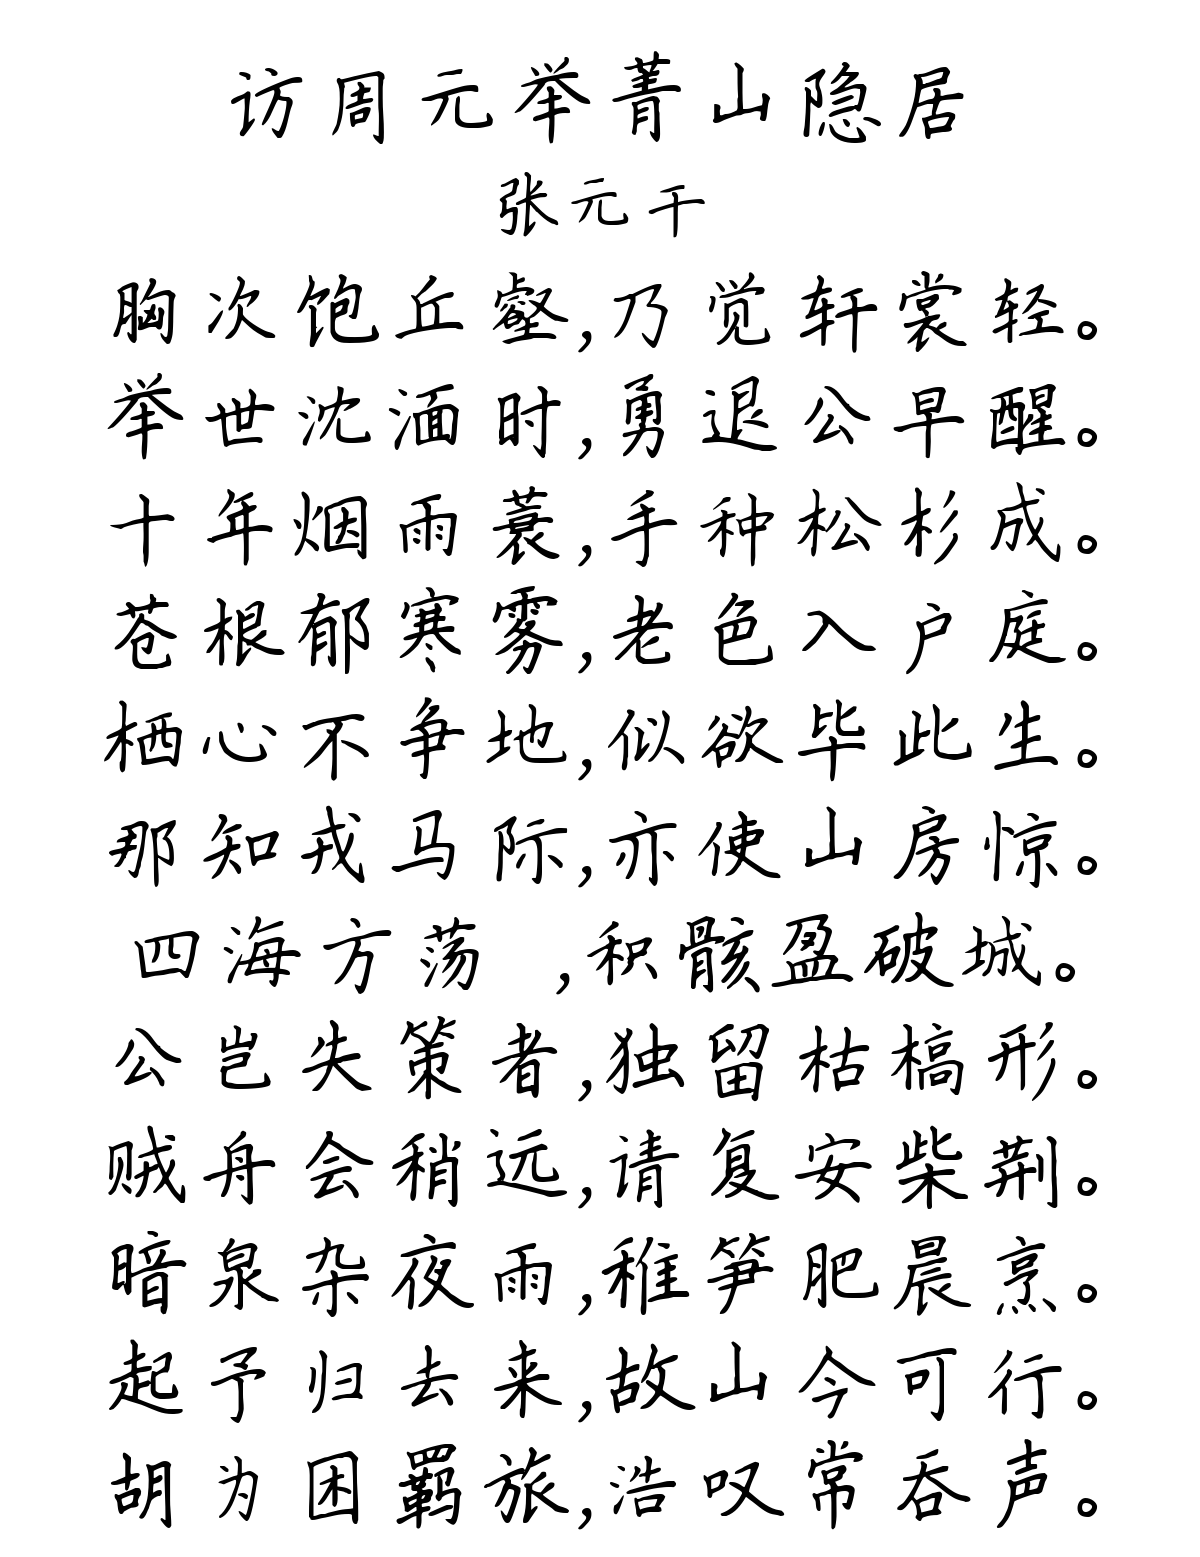 访周元举菁山隐居
张元干
胸次饱丘壑,乃觉轩裳轻。
举世沈湎时,勇退公早醒。
十年烟雨蓑,手种松杉成。
苍根郁寒雾,老色入户庭。
栖心不争地,似欲毕此生。
那知戎马际,亦使山房惊。
四海方荡 ,积骸盈破城。
公岂失策者,独留枯槁形。
贼舟会稍远,请复安柴荆。
暗泉杂夜雨,稚笋肥晨烹。
起予归去来,故山今可行。
胡为困羁旅,浩叹常吞声。